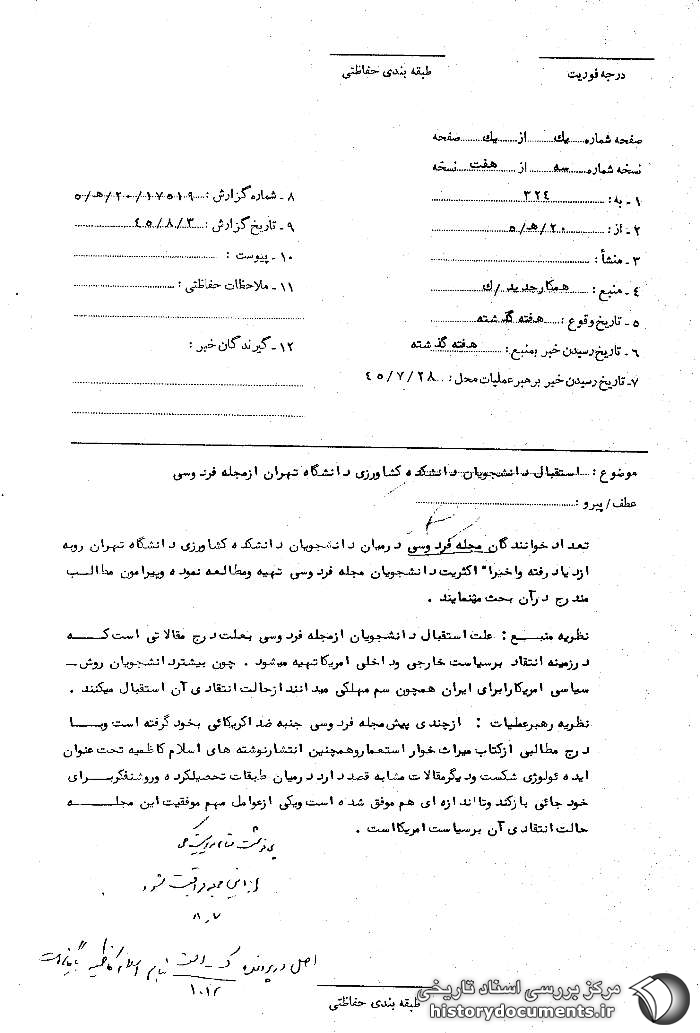 طبقه بندی حفاظتی
درجه فوریت
صفحه شماره یك از یك صفحه
نسخه شماره سه از هفت نسخه
۱ـ به : ۳۲٤
۲ـ از : ۲۰/هـ/۵
۳ـ منشأ :
٤ـ منبع : همکار جدید /ك
۵ـ تاریخ وقوع : هفته گذشته
۶ـ تاریخ رسیدن خبر بمنبع : هفته گذشته
۷ـ تاریخ رسیدن خبر برهبر عملیات محل : ٤۵/۷/۲۸
۸ـ شماره گزارش : ۲۰/۱۷۵۱۹/هـ/۵
۹ـ تاریخ گزارش : ٤۵/۸/۳
۱۰ـ پیوست :
۱۱ـ ملاحظات حفاظتی :
۱۲ـ گیرندگان خبر :
موضوع : استقبال دانشجویان دانشکده کشاورزی دانشگاه تهران ازمجله فردوسی
عطف/پیرو :
تعداد خوانندگان مجله فردوسی درمیان دانشجویان دانشکده کشاورزی دانشگاه تهران روبه
ازدیاد رفته واخیرا" اکثریت دانشجویان مجله فردوسی تهیه ومطالعه نموده وپیرامون مطالب
مندرج درآن بحث مینمایند .
نظریه منبع : علت استقبال دانشجویان ازمجله فردوسی بعلت درج مقالاتی است کـه
درزمینه انتقاد برسیاست خارجی وداخلی امریکا تهیه میشود . چون بیشتردانشجویان روش ـ
سیاسی امریکارابرای ایران همچون سم مهلکی میدانند ازحالت انتقادی آن استقبال میکنند .
نظریه رهبرعملیات : ازچندی پیش مجله فردوسی جنبه ضد امریکائی بخود گرفته است وبـا
درج مطالبی ازکتاب میراث خوار استعمار وهمچنین انتشارنوشته های اسلام کاظمیه تحت عنوان
ایده ئولوژی شکست ودیگرمقالات مشابه قصد دارد درمیان طبقات تحصیلکرده وروشنفکربـرای
خود جائی بازکند وتااندازه ای هم موفق شده است ویکی ازعوامل مهم موفقیت این مجلـه
حالت انتقادی آن برسیاست امریکااست .
۸ر۷
اصل در پرونده ك ـ الف بنام اسلام کاظمیه بایگانی است
۱۰۱۲
طبقه بندی حفاظتی
مرکز بررسی اسناد تاریخی
historydocuments.ir